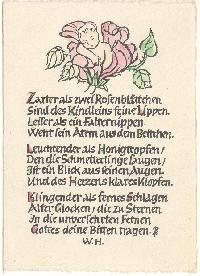 Zarter als zwei Rosenblättchen
Sind des Kindleins feine Lippen.
Leiser als ein Falternippen
Weht sein Atem aus dem Bettchen.
Leuchtender als Honigtropfen,
Den die Schmetterlinge saugen,
Ist ein Blick aus seinen Augen
Und des Herzens klares Klopfen.
Klingender als fernes Schlagen
Alter Glocken, die zu Sternen
In die unversehrten Fernen
Gottes deine Bitten tragen.
W.H.